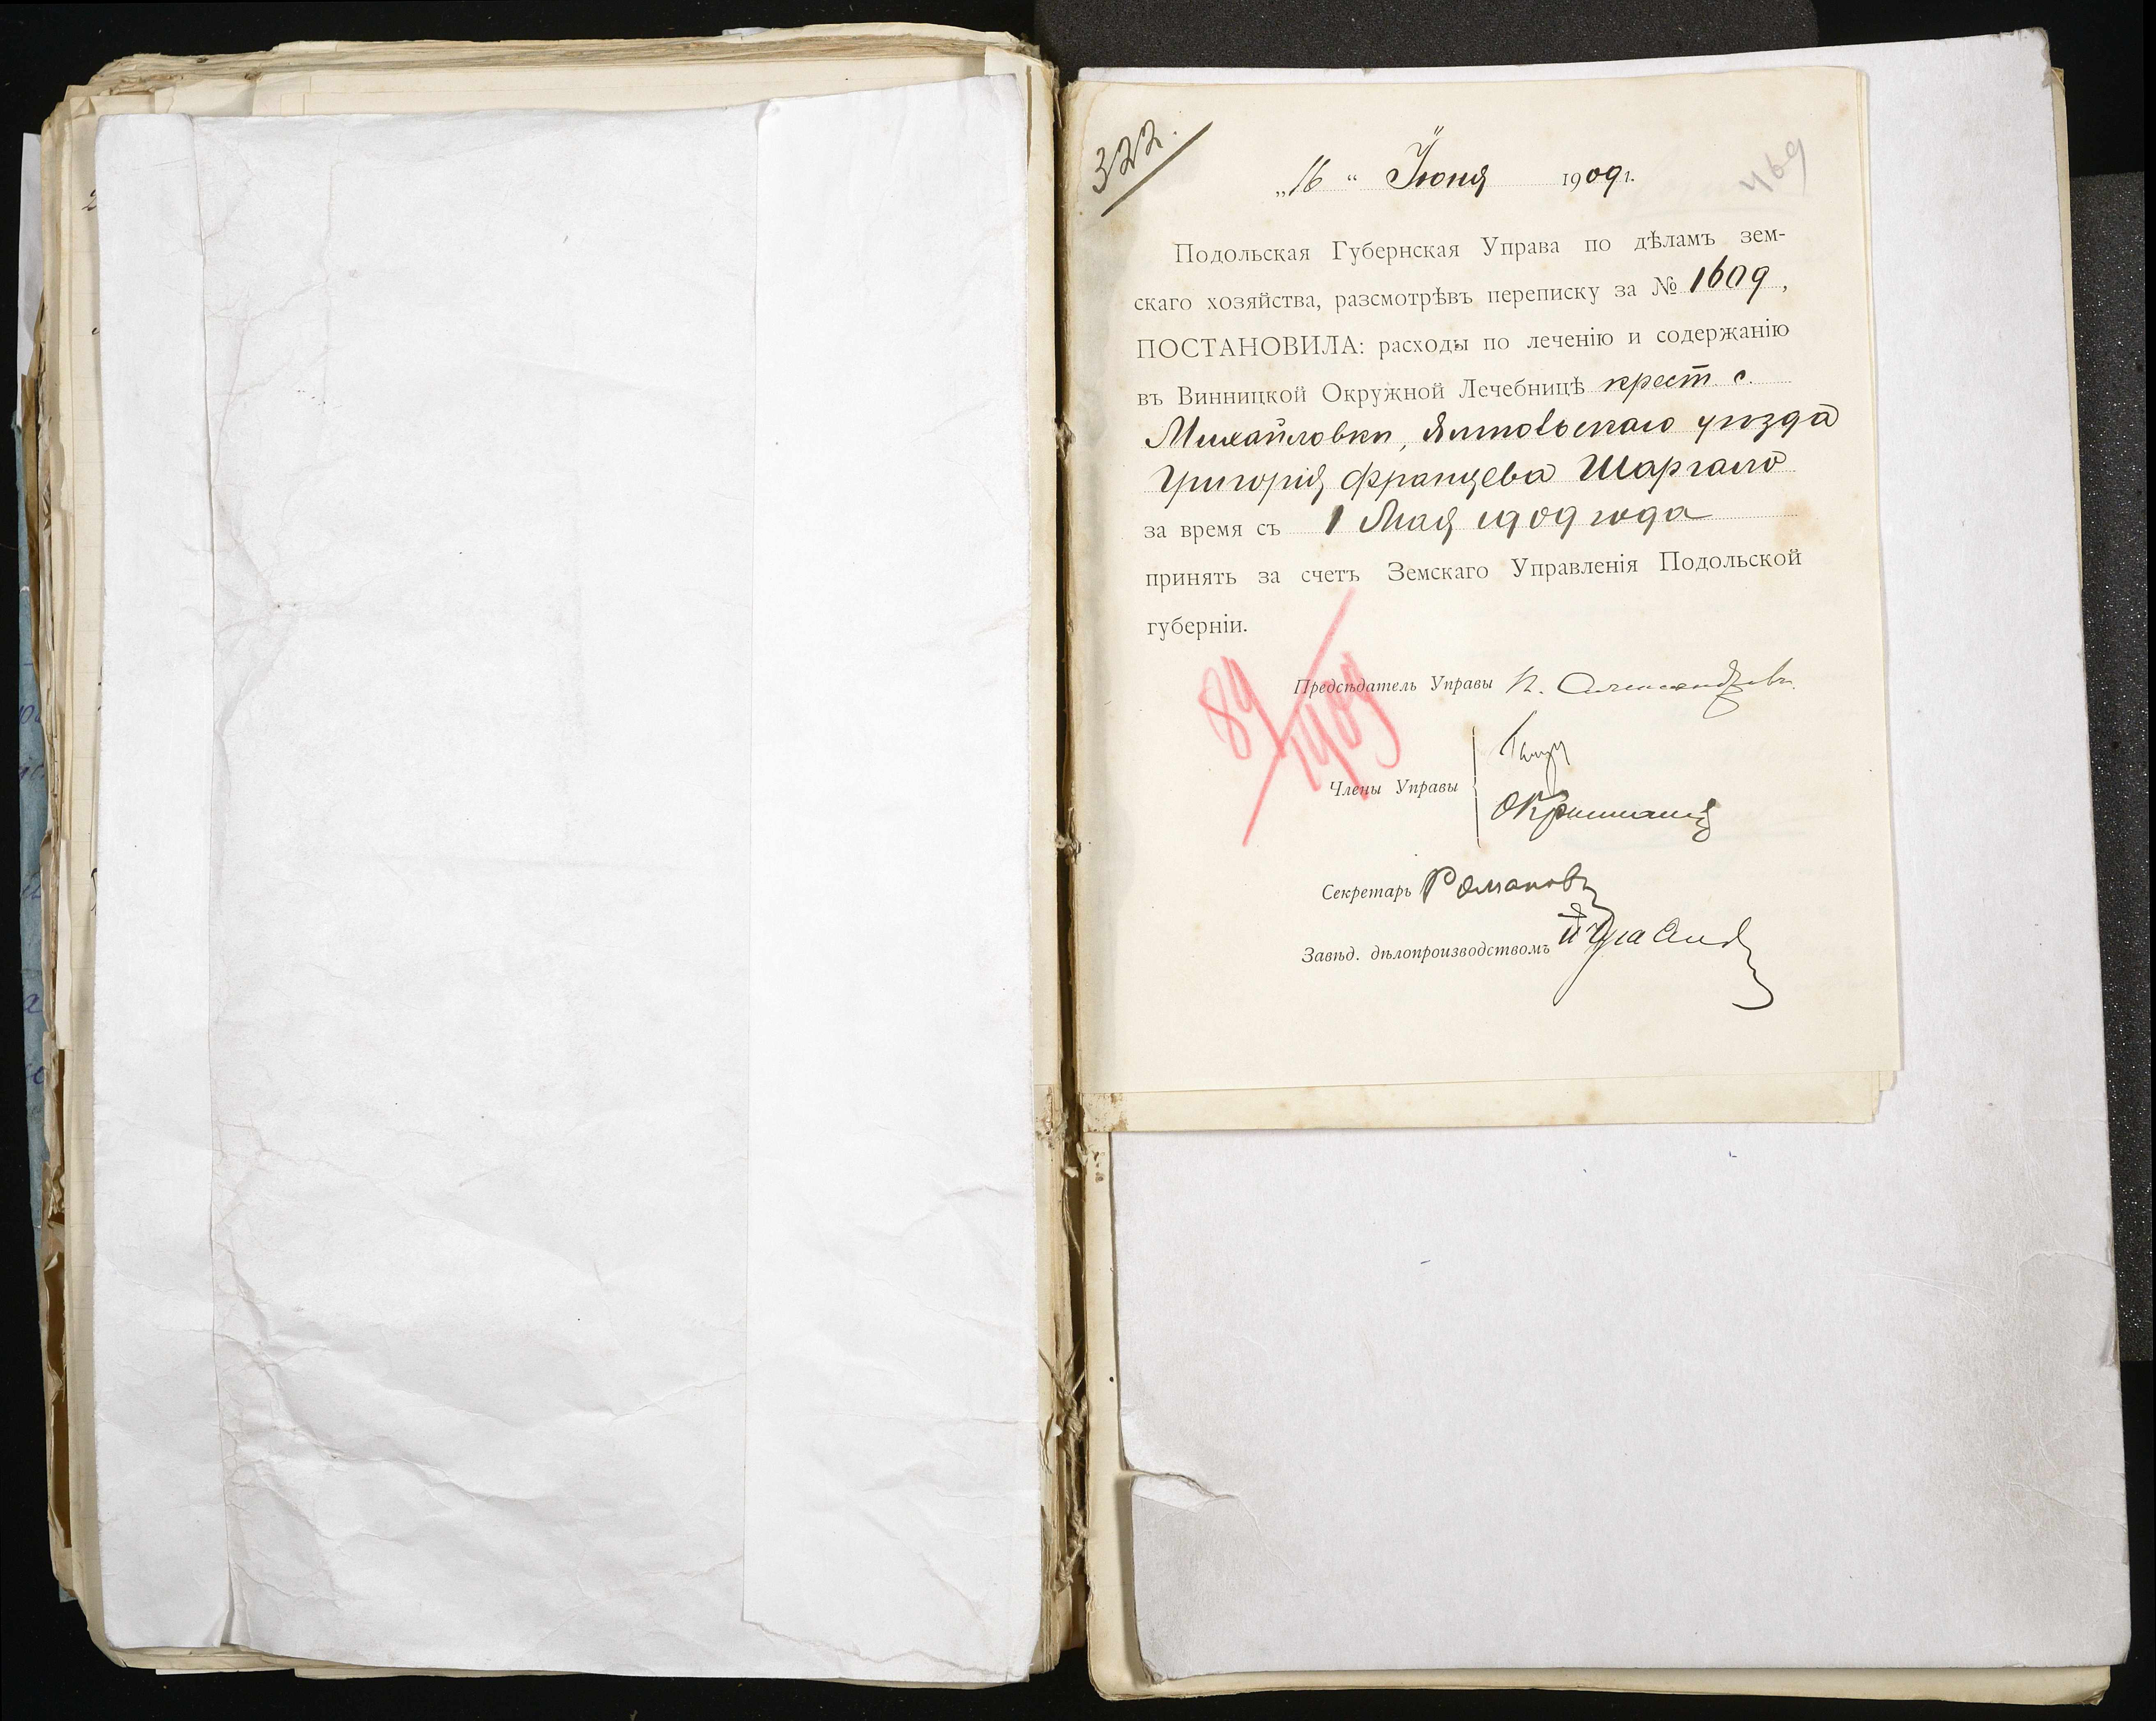 322.
469
„16“ Іюня 1909 г.
Подольская Губернская Управа по дѣламъ зем-
скаго хозяйства, разсмотрѣвъ переписку за № 1609,
ПОСТАНОВИЛА: расходы по леченію и содержанію
въ Винницкой Окружной Лечебницѣ крест. с.
Михайловки, уѣзда
Григорія Францева Шаргало
за время съ 1 Мая 1909 года
принять за счетъ Земскаго Управленія Подольской
губерніи.
89/1909
Предсѣдатель Управы П. Александровъ
Члены Управы
Секретарь Романовъ
Завѣд. дѣлопроизводствомъ